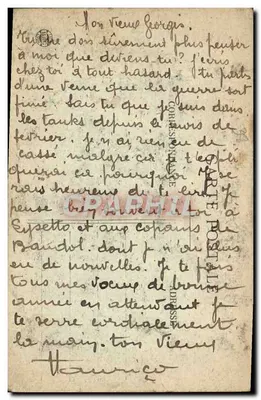 Mon vieux Georges.
Tu ne dois sûrement plus penser
à moi que deviens tu? J'écris
chez toi à tout hasard. tu parles
d'une veine que la guerre soit
finie. Sais tu que je suis dans
les tanks depuis le mois de
février. Je n'ai rien eu de
cassé malgré ça. t'expli
querai ça pourquoi. Je se
rais heureux de te lire. Je
pense bien souvent à toi à
Eysette et aux copains de
Bandol. dont je n'ai
eu de nouvelles. Je te fais
tous mes vœux de bonne
année en attendant je
te serre cordialement
la main. ton vieux
Maurice
CARTE POSTALE
CORRESPONDANCE
ADRESSE
CPARAMA